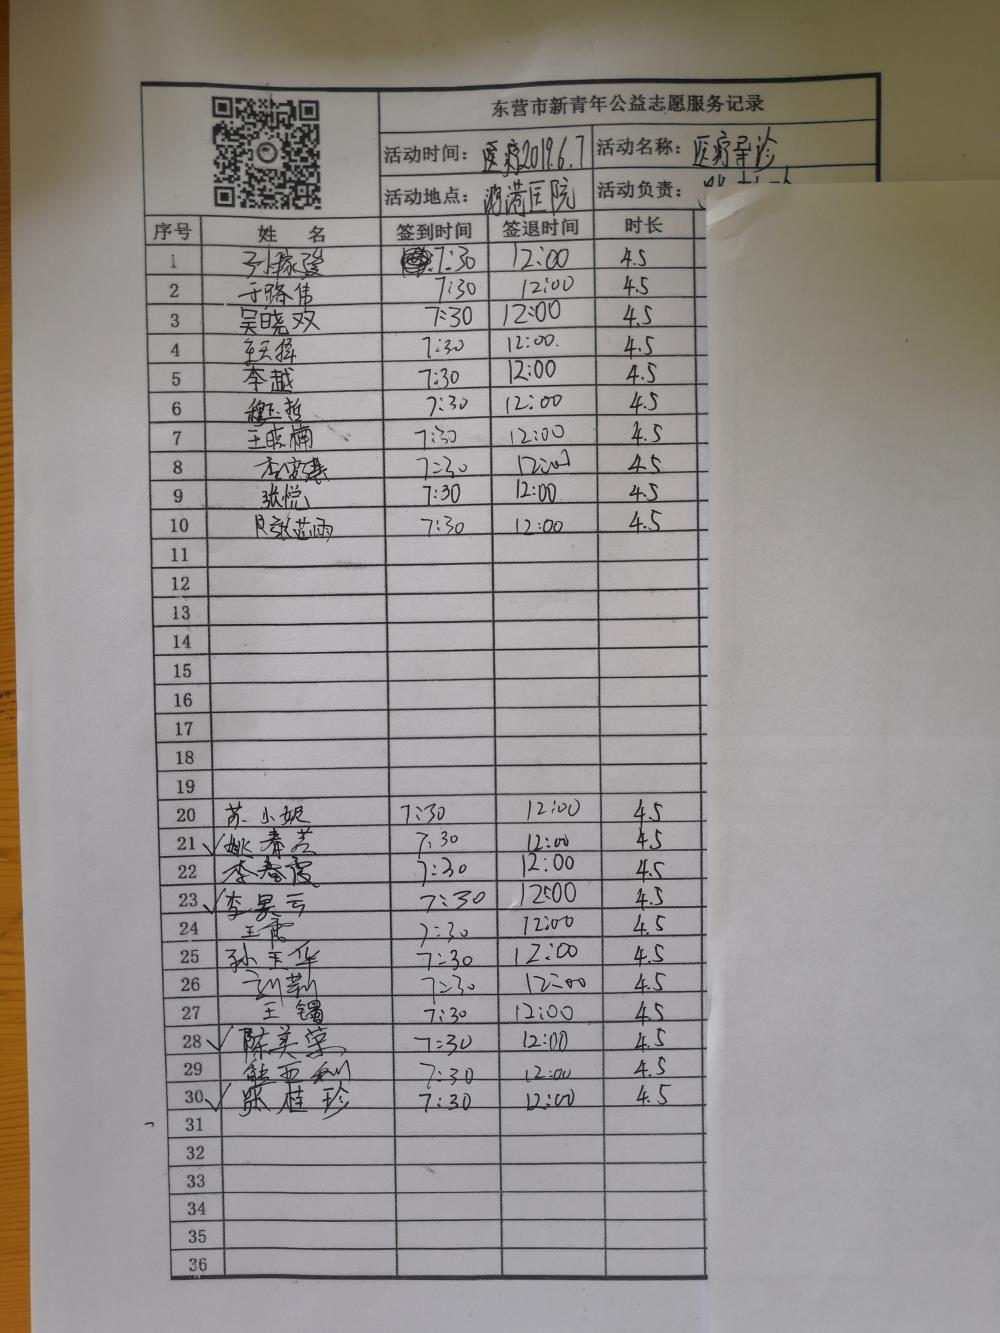 东营市新青年公益志愿服务记录
活动时间： 医疗2019.6.7 活动名称： 医疗导诊
活动地点： 港医院 活动负责：
序号 姓 名 签到时间 签退时间 时长
1 7:30 12:00 4.5
2 于路伟 7:30 12:00 4.5
3 吴晓双 7:30 12:00 4.5
4 7:30 12:00. 4.5
5 李越 7:30 12:00 4.5
6 7:30 12:00 4.5
7 王晓楠 7:30 12:00 4.5
8 7:30 12:00 4.5
9 张悦 7:30 12:00 4.5
10 7:30 12:00 4.5
11
12
13
14
15
16
17
18
19
20 苏小妮 7:30 12:00 4.5
21 姚春芝 7:30 12:00 4.5
22 李春霞 7:30 12:00 4.5
23 7:30 12:00 4.5
24 7:30 12:00 4.5
25 孙玉华 7:30 12:00 4.5
26 刘莉 7:30 12:00 4.5
27 王镯 7:30 12:00 4.5
28 陈美 7:30 12:00 4.5
29 熊亚利 7:30 12:00 4.5
30 张桂珍 7:30 12:00 4.5
31
32
33
34
35
36